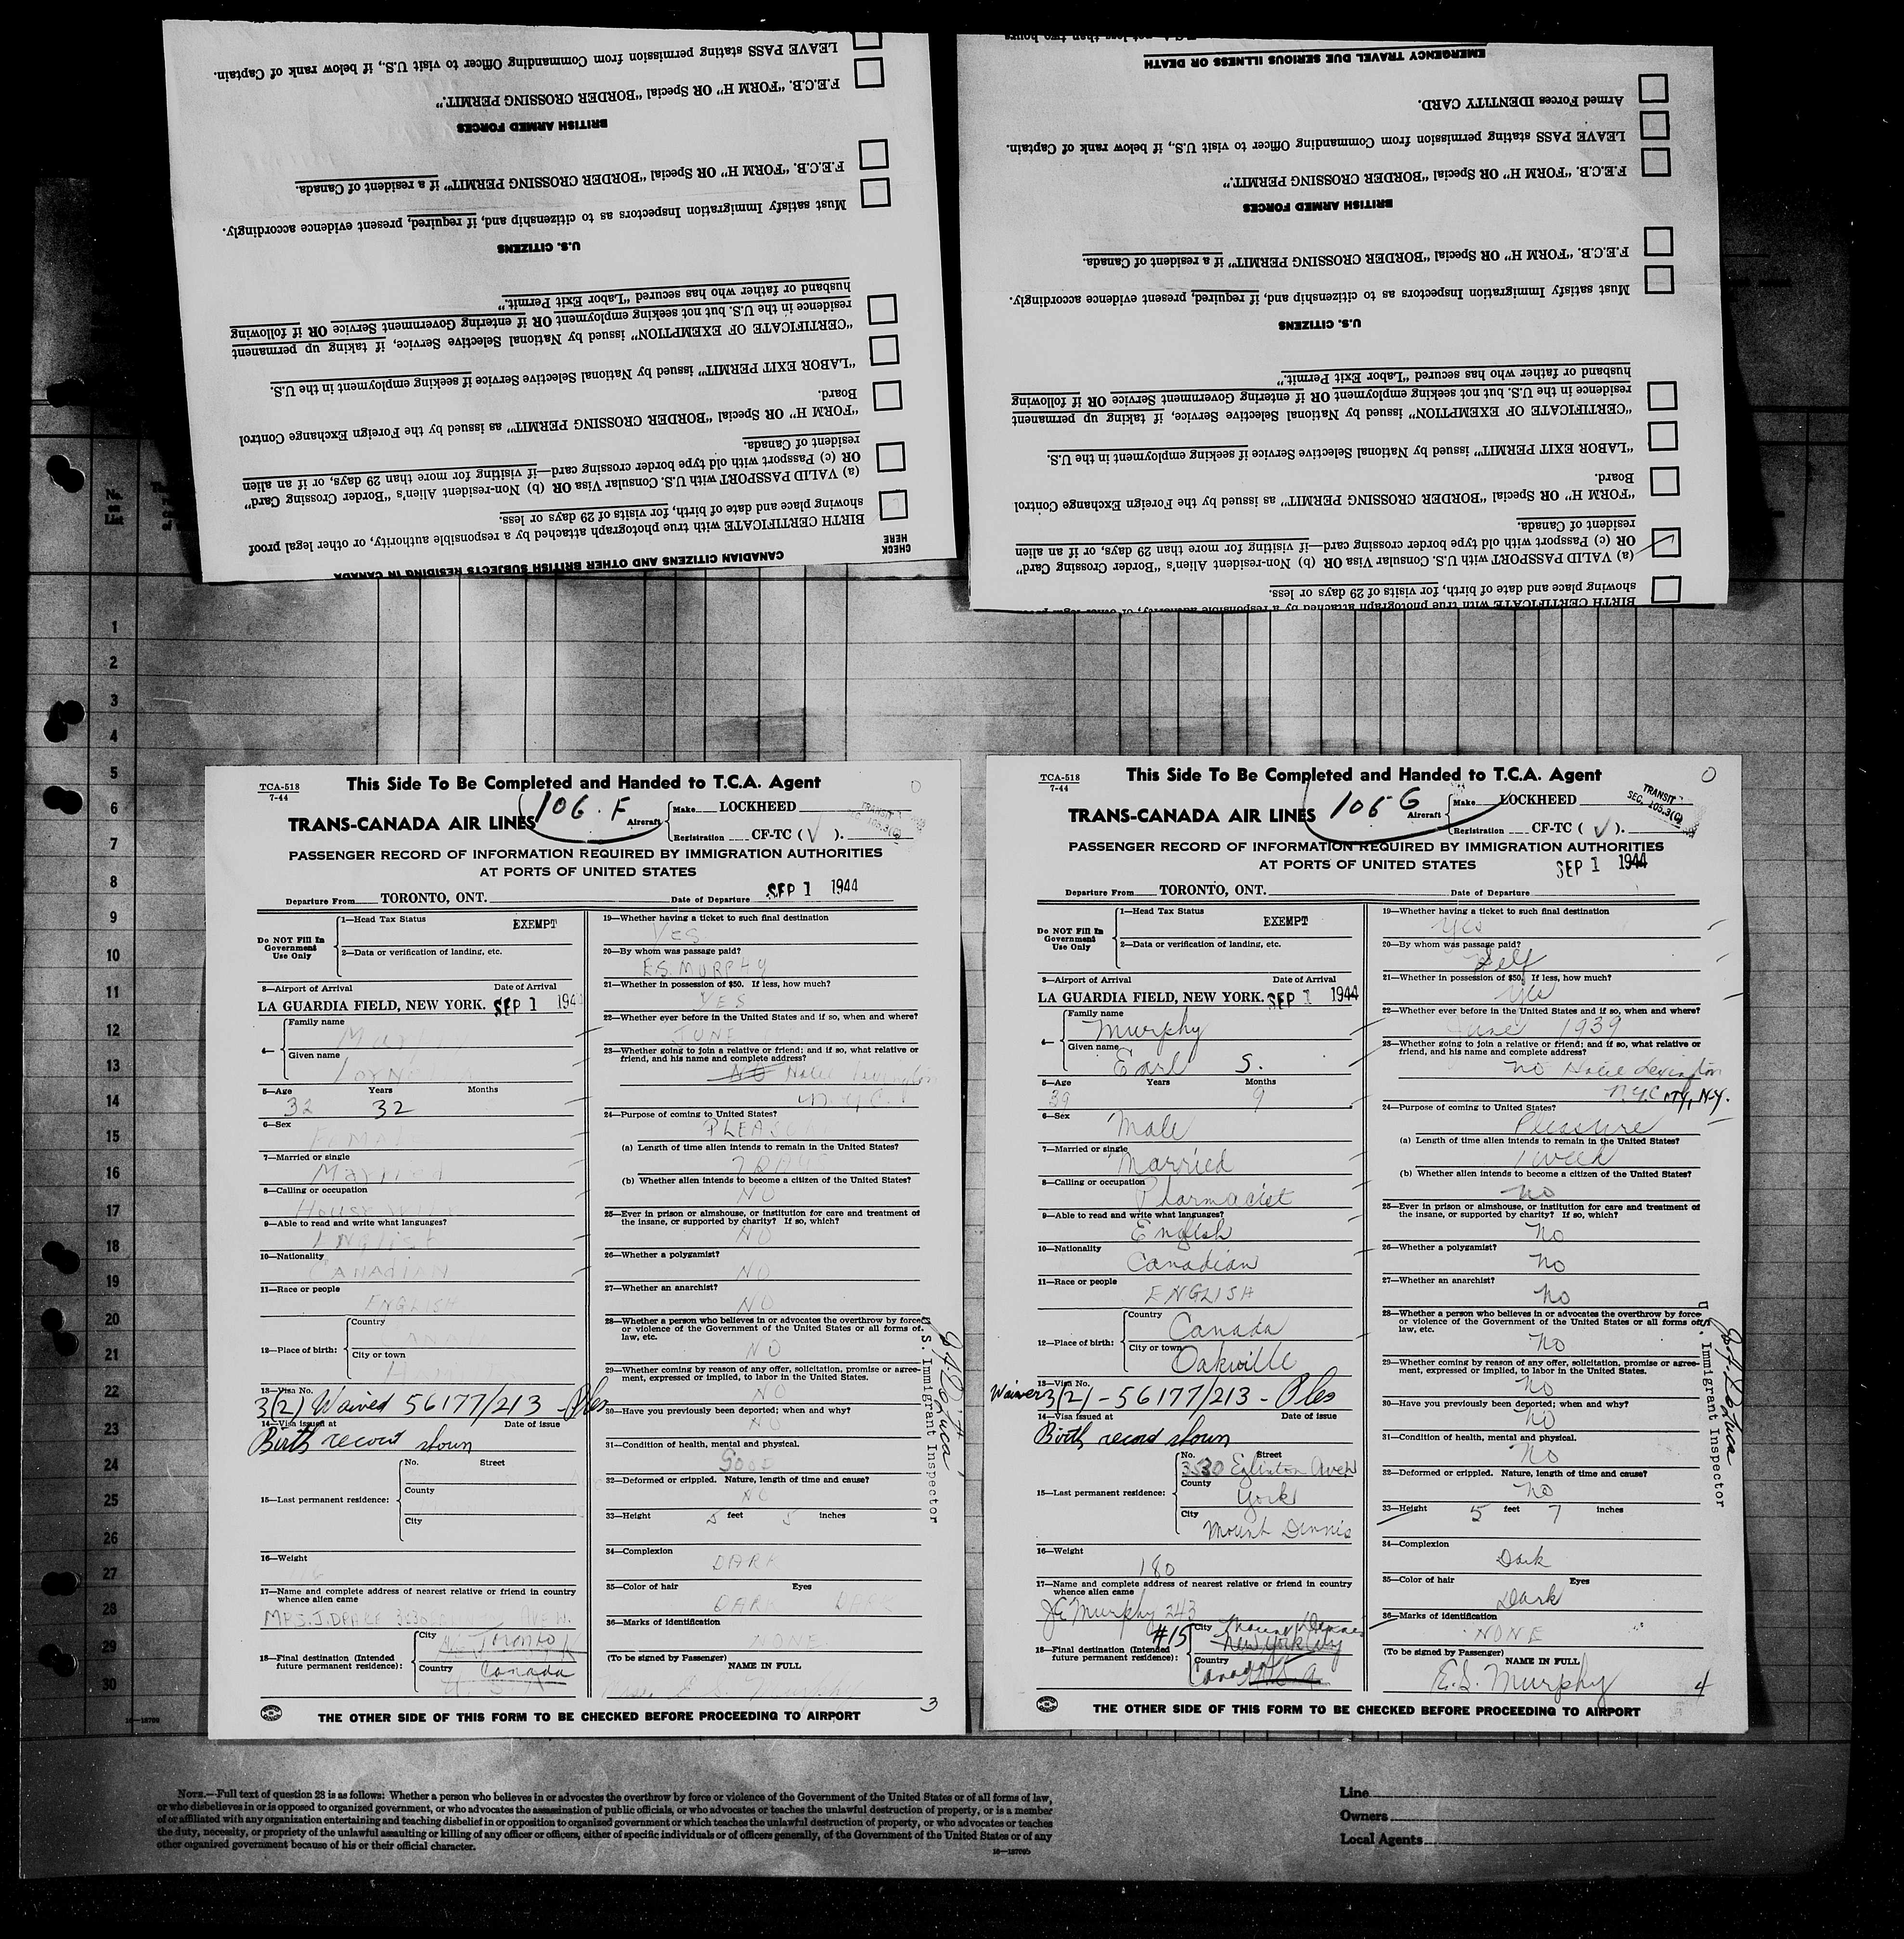 LEAVE PASS stating permission from Commanding Officer to visit U.S., if below rank of Captain.
F.E.C.B. "FORM H" OR Special "BORDER CROSSING PERMIT."
BRITISH ARMED FORCES
F.E.C.B. "FORM H" OR Special "BORDER CROSSING PERMIT" if a resident of Canada.
Must satisfy Immigration Inspectors as to citizenship and, if required, present evidence accordingly.
U.S. CITIZENS
husband or father who has secured "Labor Exit Permit."
residence in the U.S. but not seeking employment OR if entering Government Service OR if following
"CERTIFICATE OF EXEMPTION" issued by National Selective Service, if taking up permanent
"LABOR EXIT PERMIT" issued by National Selective Service if seeking employment in the U.S.
Board.
"FORM H" OR Special "BORDER CROSSING PERMIT" as issued by the Foreign Exchange Control
resident of Canada.
OR (c) Passport with old type border crossing card—if visiting for more than 29 days, or if an alien
(a) VALID PASSPORT with U.S. Consular Visa OR (b) Non-resident Alien's "Border Crossing Card"
showing place and date of birth, for visits of 29 days or less.
BIRTH CERTIFICATE with true photograph attached by a responsible authority, or other legal proof
CHECK HERE
CANADIAN CITIZENS AND OTHER BRITISH SUBJECTS RESIDING IN CANADA
EMERGENCY TRAVEL DUE SERIOUS ILLNESS OR DEATH
Armed Forces IDENTITY CARD.
LEAVE PASS stating permission from Commanding Officer to visit U.S., if below rank of Captain.
F.E.C.B. "FORM H" OR Special "BORDER CROSSING PERMIT."
BRITISH ARMED FORCES
F.E.C.B. "FORM H" OR Special "BORDER CROSSING PERMIT" if a resident of Canada.
Must satisfy Immigration Inspectors as to citizenship and, if required, present evidence accordingly.
U.S. CITIZENS
husband or father who has secured "Labor Exit Permit."
residence in the U.S. but not seeking employment OR if entering Government Service OR if following
"CERTIFICATE OF EXEMPTION" issued by National Selective Service, if taking up permanent
"LABOR EXIT PERMIT" issued by National Selective Service if seeking employment in the U.S.
Board.
"FORM H" OR Special "BORDER CROSSING PERMIT" as issued by the Foreign Exchange Control
resident of Canada.
OR (c) Passport with old type border crossing card—if visiting for more than 29 days, or if an alien
(a) VALID PASSPORT with U.S. Consular Visa OR (b) Non-resident Alien's "Border Crossing Card"
showing place and date of birth, for visits of 29 days or less.
BIRTH CERTIFICATE with true photograph attached by a responsible authority, or other legal
No. on List
1
2
3
4
5
6
7
8
9
10
11
12
13
14
15
16
17
18
19
20
21
22
23
24
25
26
27
28
29
30
TCA-518
7-44
This Side To Be Completed and Handed to T.C.A. Agent
106.F
TRANS-CANADA AIR LINES
Aircraft
Make LOCKHEED
Registration CF-TC (√).
TRANSIT
SEC. 105.3(C)
PASSENGER RECORD OF INFORMATION REQUIRED BY IMMIGRATION AUTHORITIES
AT PORTS OF UNITED STATES
Departure From TORONTO, ONT. Date of Departure SEP 1 1944
Do NOT Fill In Government Use Only
1—Head Tax Status EXEMPT
2—Data or verification of landing, etc.
3—Airport of Arrival Date of Arrival
LA GUARDIA FIELD, NEW YORK. SEP 1 194
4— Family name
Given name
5—Age Years Months
32 32
6—Sex
7—Married or single
8—Calling or occupation
House
9—Able to read and write what languages?
English
10—Nationality
CANADIAN
11—Race or people
ENGLISH
12—Place of birth: Country
City or town
13—Visa No.
3(2) Waived 56177/213 - Ples
14—Visa issued at Date of issue
Birth record shown
15—Last permanent residence: No. Street
County
City
16—Weight
17—Name and complete address of nearest relative or friend in country
whence alien came
MRS. J. DRAKE AVE W.
18—Final destination (Intended
future permanent residence): City Toronto
Country Canada
19—Whether having a ticket to such final destination
YES
20—By whom was passage paid?
E.S. MURPHY
21—Whether in possession of $50. If less, how much?
YES
22—Whether ever before in the United States and if so, when and where?
JUNE
23—Whether going to join a relative or friend; and if so, what relative or
friend, and his name and complete address?
NO Hotel Lexington
N.Y.C.
24—Purpose of coming to United States?
PLEASURE
(a) Length of time alien intends to remain in the United States?
7 DAYS
(b) Whether alien intends to become a citizen of the United States?
NO
25—Ever in prison or almshouse, or institution for care and treatment of
the insane, or supported by charity? If so, which?
NO
26—Whether a polygamist?
NO
27—Whether an anarchist?
NO
28—Whether a person who believes in or advocates the overthrow by force
or violence of the Government of the United States or all forms of
law, etc.
NO
29—Whether coming by reason of any offer, solicitation, promise or agree-
ment, expressed or implied, to labor in the United States.
NO
30—Have you previously been deported; when and why?
NO
31—Condition of health, mental and physical.
GOOD
32—Deformed or crippled. Nature, length of time and cause?
NO
33—Height 5 feet 5 inches
34—Complexion
DARK
35—Color of hair Eyes
DARK DARK
36—Marks of identification
NONE
(To be signed by Passenger) NAME IN FULL
Mrs. E. S. Murphy
3
U.S. Immigrant Inspector
THE OTHER SIDE OF THIS FORM TO BE CHECKED BEFORE PROCEEDING TO AIRPORT
TCA-518
7-44
This Side To Be Completed and Handed to T.C.A. Agent
106 G
TRANS-CANADA AIR LINES
Aircraft
Make LOCKHEED
Registration CF-TC (√).
TRANSIT
SEC. 105.3(C)
PASSENGER RECORD OF INFORMATION REQUIRED BY IMMIGRATION AUTHORITIES
AT PORTS OF UNITED STATES
SEP 1 1944
Departure From TORONTO, ONT. Date of Departure
Do NOT Fill In Government Use Only
1—Head Tax Status EXEMPT
2—Data or verification of landing, etc.
3—Airport of Arrival Date of Arrival
LA GUARDIA FIELD, NEW YORK. SEP 1 1944
4— Family name
Murphy
Given name
Earl S.
5—Age Years Months
39 9
6—Sex
Male
7—Married or single
Married
8—Calling or occupation
Pharmacist
9—Able to read and write what languages?
English
10—Nationality
Canadian
11—Race or people
ENGLISH
12—Place of birth: Country
Canada
City or town
Oakville
13—Visa No.
Waiver 3(2) - 56177/213 - Ples
14—Visa issued at Date of issue
Birth record shown
15—Last permanent residence: No. Street
3530 Eglinton Ave W
County
York
City
Mount Dennis
16—Weight
180
17—Name and complete address of nearest relative or friend in country
whence alien came
J E Murphy 243
#15
18—Final destination (Intended
future permanent residence): City Mount Dennis
New York City
Country
Canada U.S.A.
19—Whether having a ticket to such final destination
Yes
20—By whom was passage paid?
Self
21—Whether in possession of $50. If less, how much?
Yes
22—Whether ever before in the United States and if so, when and where?
June 1939
23—Whether going to join a relative or friend; and if so, what relative or
friend, and his name and complete address?
no Hotel Lexington
N.Y. City, N.Y.
24—Purpose of coming to United States?
Pleasure
(a) Length of time alien intends to remain in the United States?
1 week
(b) Whether alien intends to become a citizen of the United States?
no
25—Ever in prison or almshouse, or institution for care and treatment of
the insane, or supported by charity? If so, which?
no
26—Whether a polygamist?
no
27—Whether an anarchist?
no
28—Whether a person who believes in or advocates the overthrow by force
or violence of the Government of the United States or all forms of
law, etc.
no
29—Whether coming by reason of any offer, solicitation, promise or agree-
ment, expressed or implied, to labor in the United States.
no
30—Have you previously been deported; when and why?
no
31—Condition of health, mental and physical.
no
32—Deformed or crippled. Nature, length of time and cause?
no
33—Height 5 feet 7 inches
34—Complexion
Dark
35—Color of hair Eyes
Dark
36—Marks of identification
NONE
(To be signed by Passenger) NAME IN FULL
E.S. Murphy
4
U.S. Immigrant Inspector
THE OTHER SIDE OF THIS FORM TO BE CHECKED BEFORE PROCEEDING TO AIRPORT
NOTE.—Full text of question 28 is as follows: Whether a person who believes in or advocates the overthrow by force or violence of the Government of the United States or of all forms of law,
or who disbelieves in or is opposed to organized government, or who advocates the assassination of public officials, or who advocates or teaches the unlawful destruction of property, or is a member
of or affiliated with any organization entertaining and teaching disbelief in or opposition to organized government or which teaches the unlawful destruction of property, or who advocates or teaches
the duty, necessity, or propriety of the unlawful assaulting or killing of any officer or officers, either of specific individuals or of officers generally, of the Government of the United States or of any
other organized government because of his or their official character.
Line
Owners
Local Agents